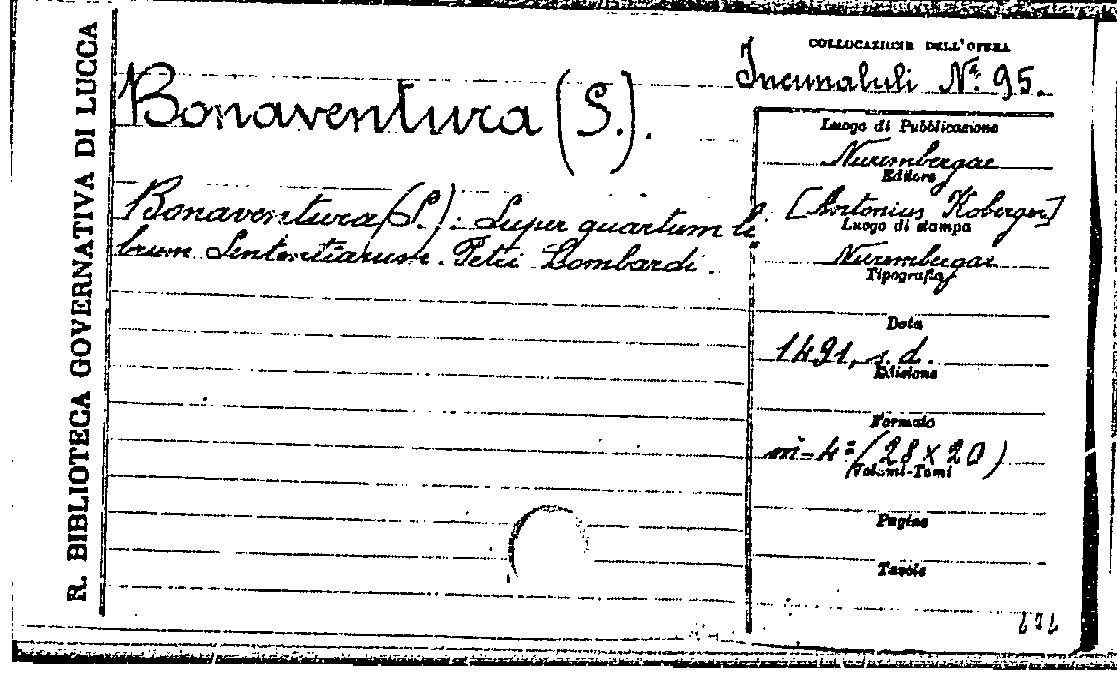 R. BIBLIOTECA GOVERNATIVA DI LUCCA
Bonaventura (S.).
Bonaventura (S.): Super quartum li-
brum Sententiarum Petri Lombardi.
COLLOCAZIONE DELL'OPERA
Incunabuli N.° 95.
Luogo di Pubblicazione
Nurembergae
Editore
[Antonius Koberger]
Luogo di stampa
Nurembergae
Tipografia
Data
1491, s. d.
Edizione
Formato
in-4° (28 x 20)
Volumi-Tomi
Pagine
Tavole